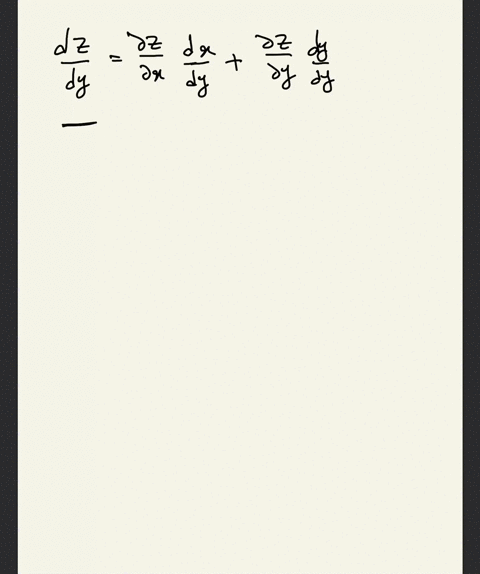 dz/dy = ∂z/∂x dx/dy + ∂z/∂y dy/dy